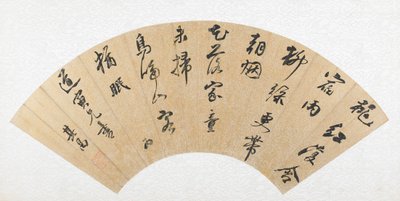 桃紅復含
宿雨
柳綠更帶
朝烟
花落家童
未掃
鳥啼山客
猶眠
道寅兄書
其昌